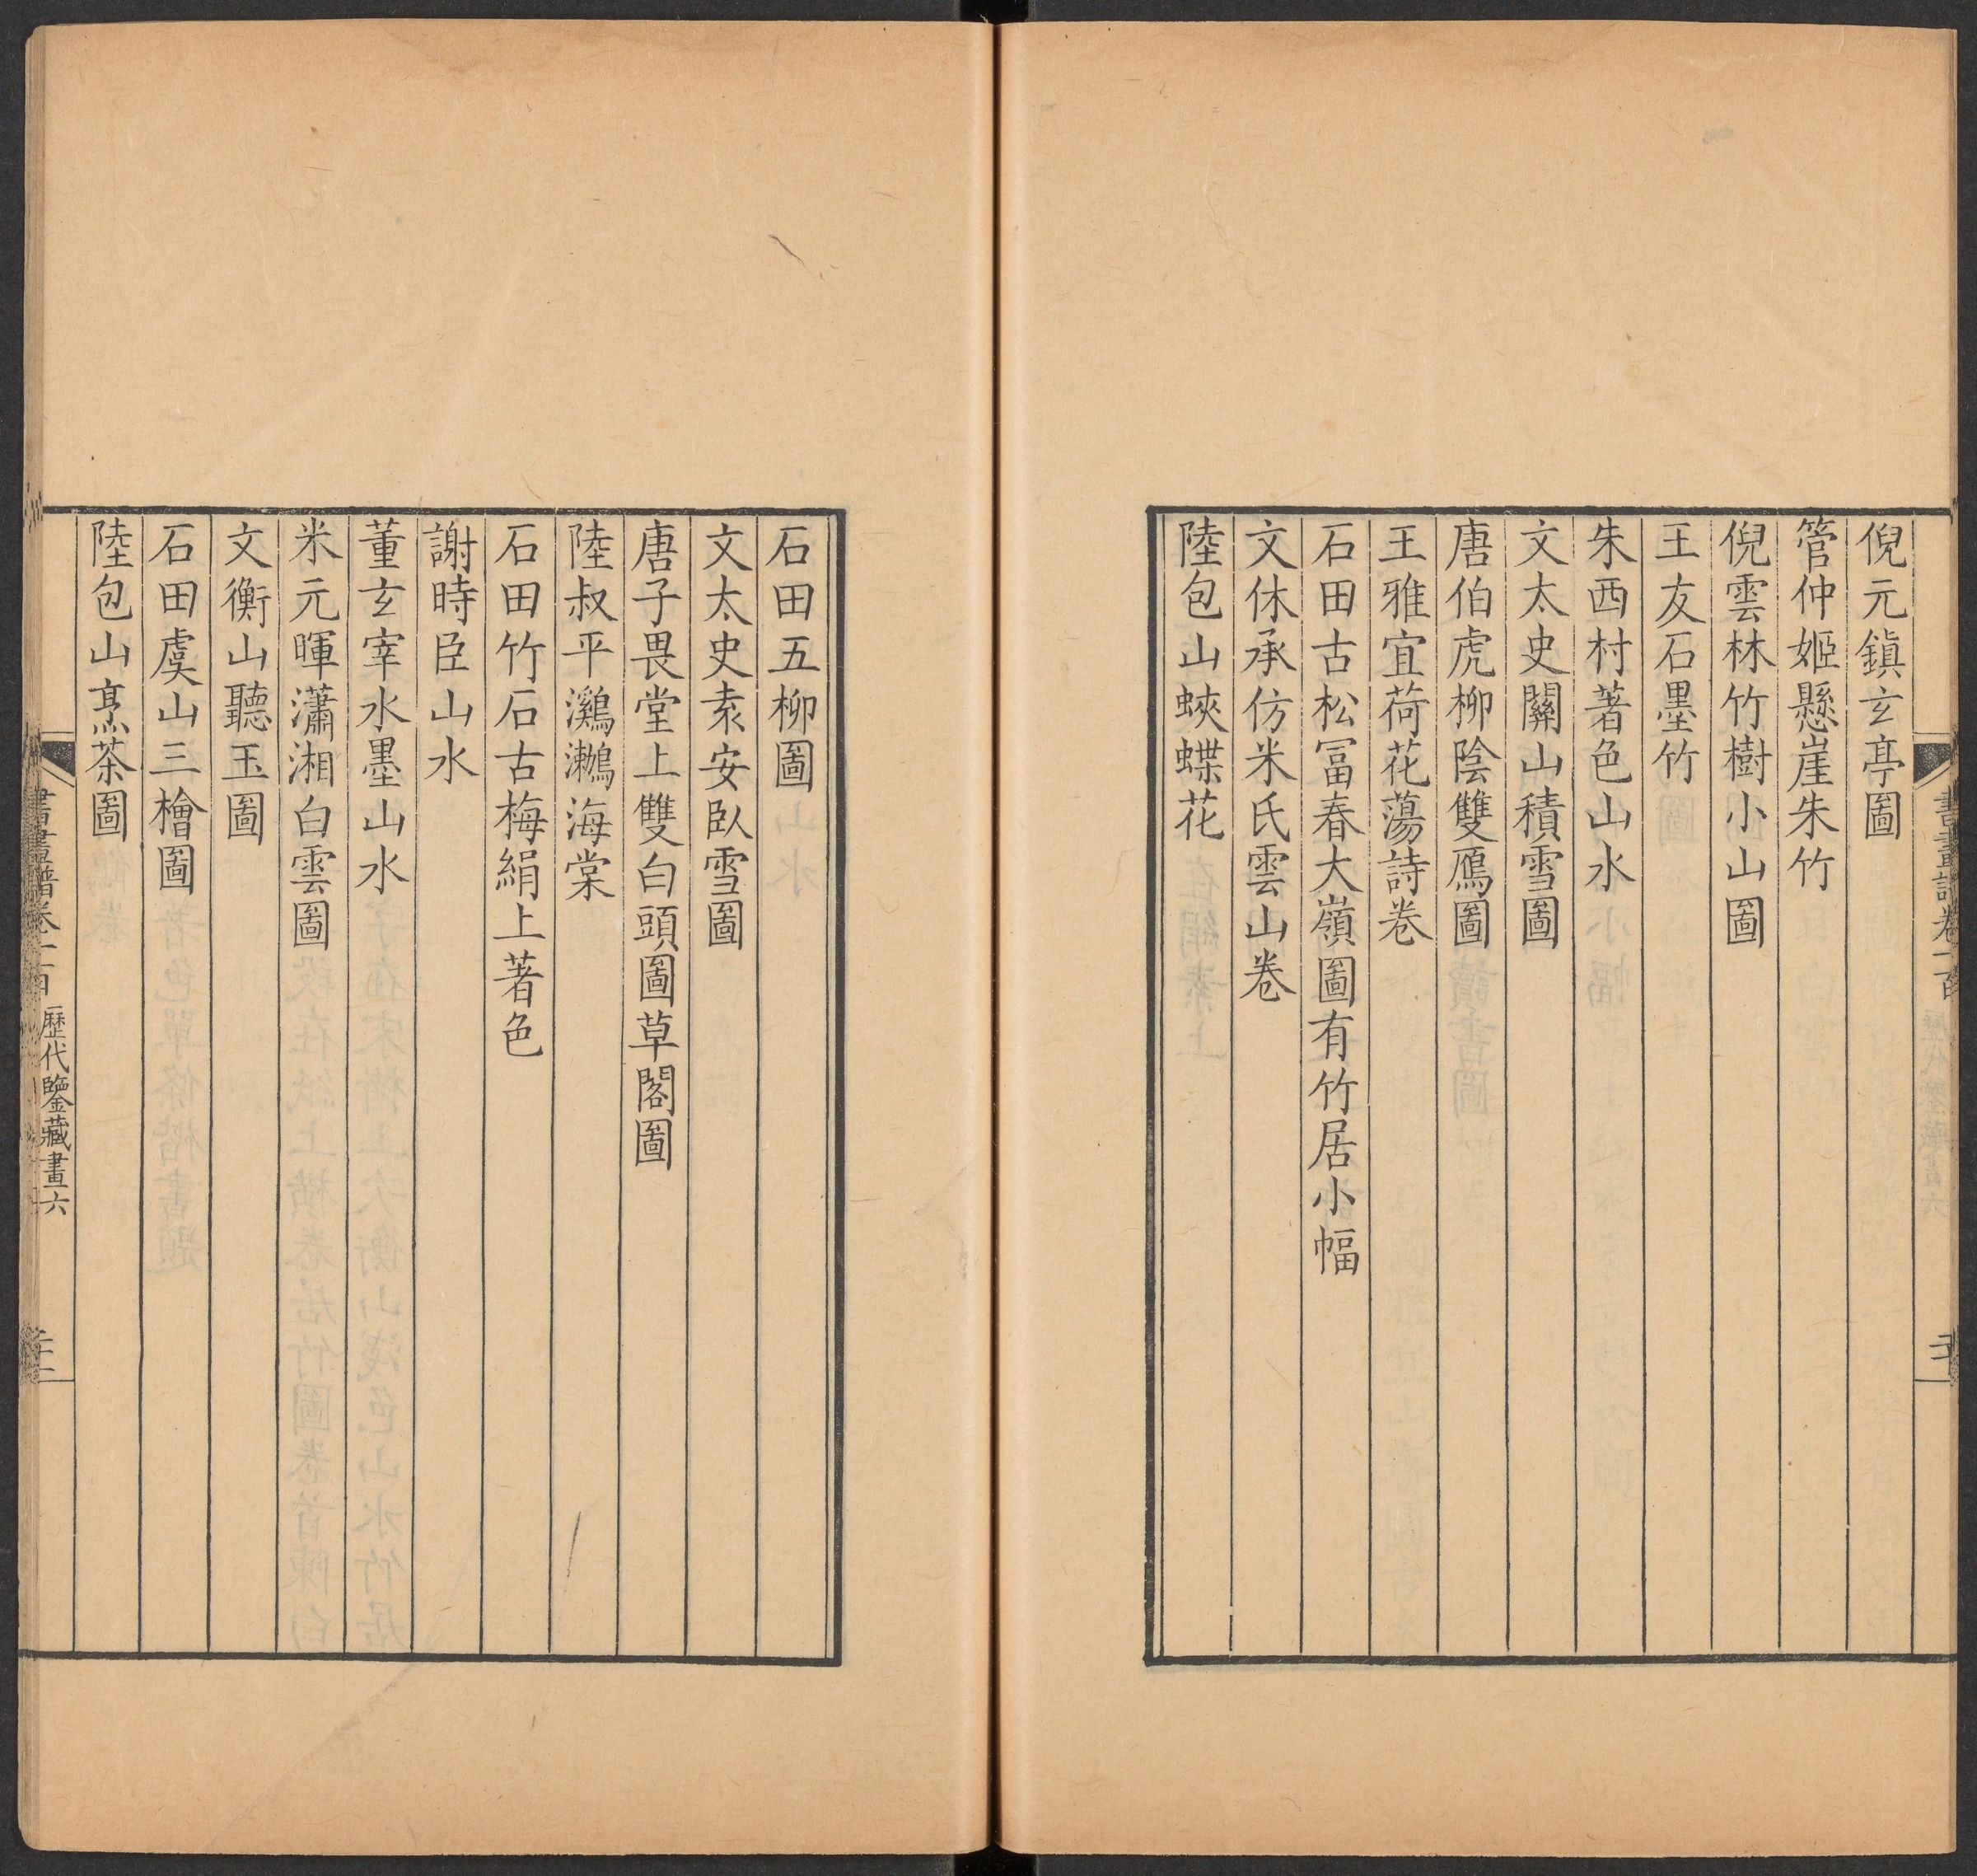 倪元鎮玄亭圖
管仲姬懸崖朱竹
倪雲林竹樹小山圖
王友石墨竹
朱西村著色山水
文太史關山積雪圖
唐伯虎柳陰雙鴈圖
王雅宜荷花蕩詩卷
石田古松冨春大嶺圖有竹居小幅
文休承仿米氏雲山卷
陸包山蛺蝶花
石田五柳圖
文太史袁安臥雪圖
唐子畏堂上雙白頭圖草閣圖
陸叔平鸂鷘海棠
石田竹石古梅絹上著色
謝時臣山水
董玄宰水墨山水
米元暉瀟湘白雲圖
文衡山聽玉圖
石田虞山三檜圖
陸包山烹茶圖
書畫譜卷一百 歷代鑒藏畫六